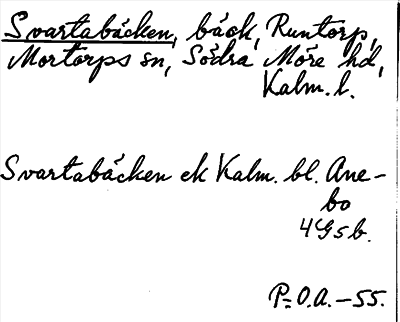 Svartabäcken, bäck, Runtorp,
Mortorps sn, Södra Möre hd,
Kalm. l.
Svartabäcken ek Kalm. bl. Ane-
bo
4G5b.
P-O.A. - 55.